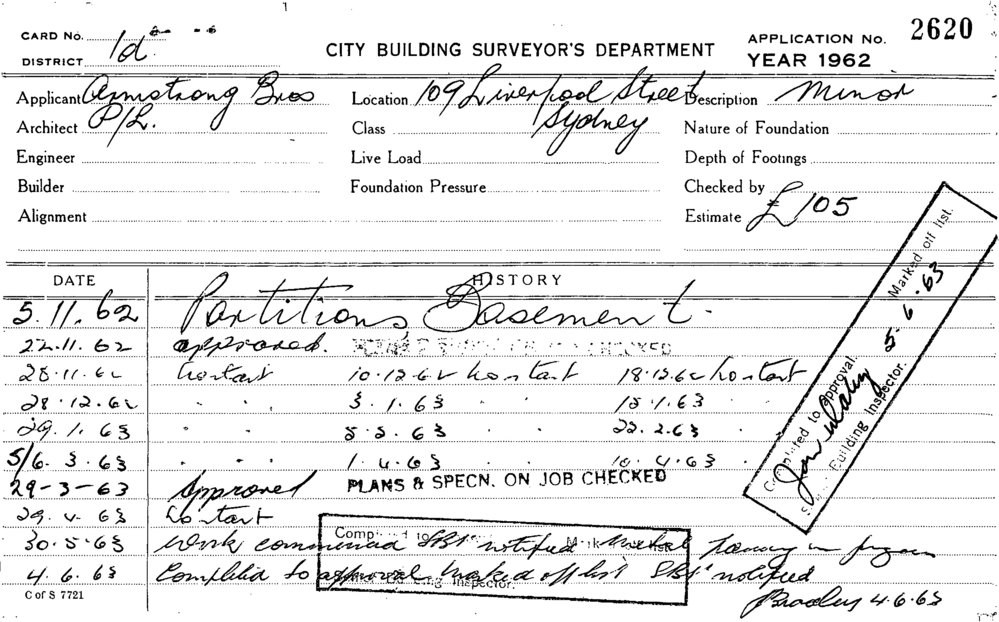 CARD No.
DISTRICT 1d
CITY BUILDING SURVEYOR'S DEPARTMENT
APPLICATION No. 2620
YEAR 1962
Applicant Armstrong Bros Location 109 Liverpool Street Description Minor
Architect P/L. Class Sydney Nature of Foundation
Engineer Live Load Depth of Footings
Builder Foundation Pressure Checked by
Alignment Estimate £105
DATE HISTORY
5.11.62 Partitions Basement.
22.11.62 approved. CHECKED
28.11.62 no start 10.12.62 no start 18.12.62 no start
28.12.62 " " 3.1.63 " " 15.1.63 " "
29.1.63 " " 5.2.63 " " 22.2.63 " "
5/6.3.63 " " 1.4.63 " " 10.4.63 " "
29-3-63 Approved PLANS & SPECN. ON JOB CHECKED
29.4.63 no start
30.5.63 work commenced SBI notified metal in
4.6.63 Completed to approval. Marked off list SBI notified
Building Inspector.
4.6.63
Completed to Approval. Marked off list.
5.6.63
Building Inspector.
C of S 7721